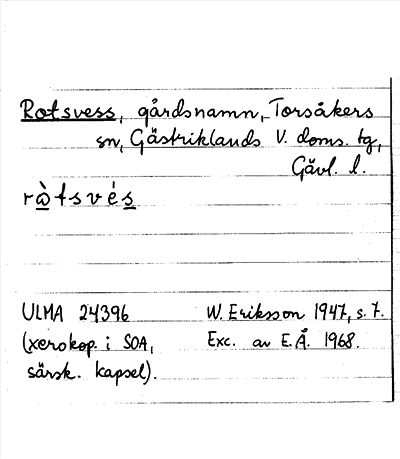 Rotsvess, gårdsnamn, Torsåkers
sn, Gästriklands V. doms. tg,
Gävl. l.
rò̲tsvés̲
ULMA 24396 W. Eriksson 1947, s. 7.
(xerokop. i SOA, Exc. av E.Å. 1968.
särsk. kapsel).